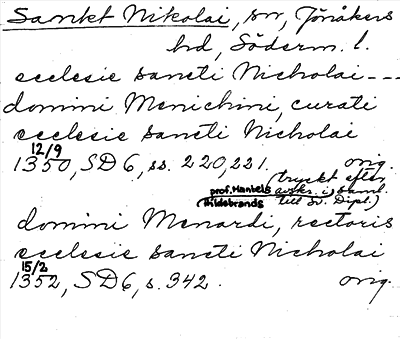 Sankt Nikolai, sn, Jönåkers
hd, Söderm. l.
ecclesie sancti Nicholai ---
domini Menichini, curati
ecclesie sancti Nicholai
12/9
1350, SD 6, ss. 220, 221. orig.
(tryckt efter
prof. Hankels avskr. i saml.
(Hildebrands till Sv. Dipl.)
domini Menardi, rectoris
ecclesie sancti Nicholai
15/2
1352, SD 6, s. 342. orig.